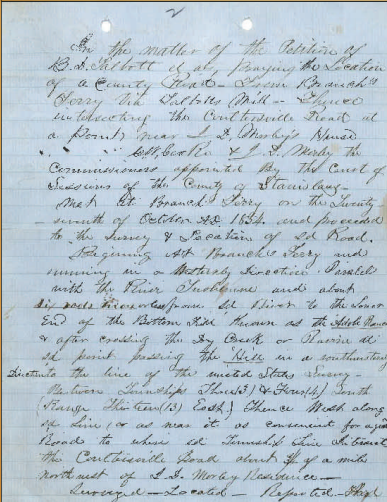 2
In the matter of the Petition of
Talbott et al, Praying the Location
of a County Road - From Branch's
Ferry Via Talbotts Mill - Thence
intersecting the Coultersville Road at
a point near J. D. Morley's House
& J. D. Morley the
Commissioners appointed By the Court of
Sessions of the County of Stanislaus -
Met At Branch's Ferry on the Twenty
- seventh of October AD 1854 and proceeded
to the Survey & Location of sd Road.
Begining At Branch's Ferry and
running in a Westerly Direction Parallel
with the River Tuolumne and about
six rods from sd River to the Lower
End of the Bottom Field known as the
& after crossing the Dry Creek or Ravine at
sd point passing the Hill in a southwesterly
Direction to the line of the united States Survey -
Between Townships Three (3) & Four (4) South
(Range Thirteen (13) East) Thence West along
sd Line, or as near it as convenient for a good
Road to where sd Township Line Intersects
the Coultersville Road about 1/4 of a mile
northwest of J. D. Morley Residence -
Surveyed - Located - Reported -